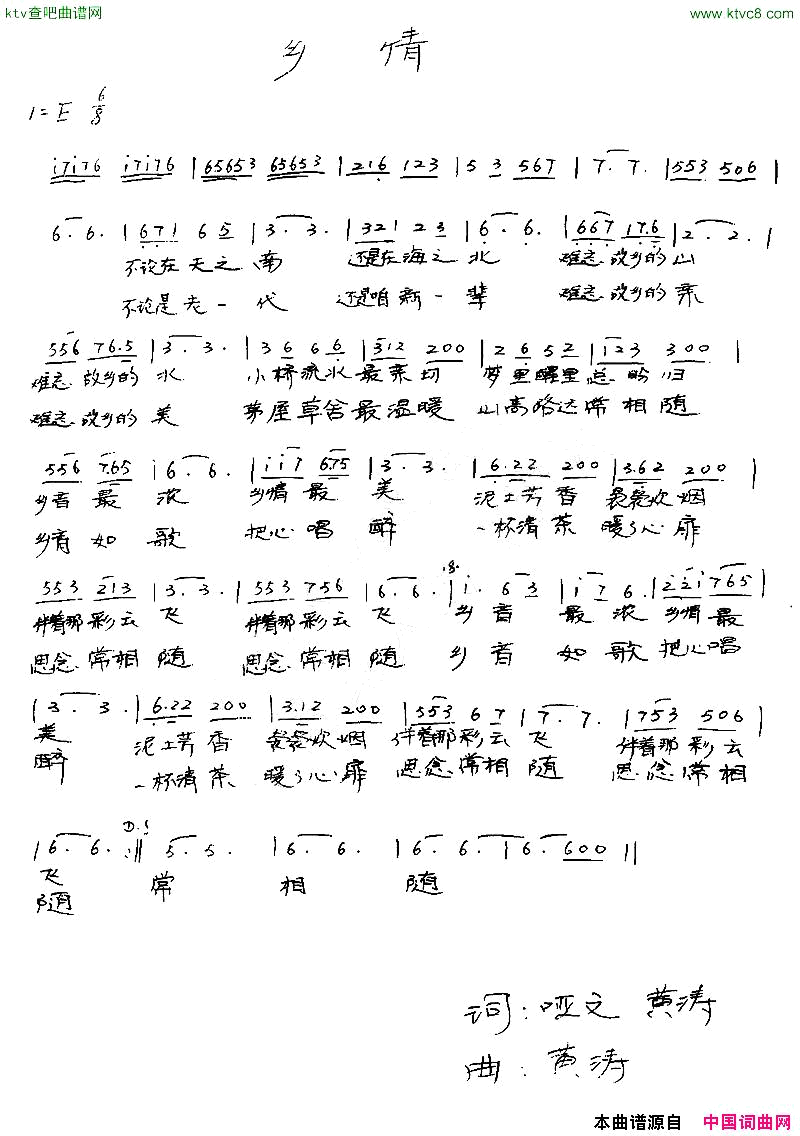 ktv查吧曲谱网 www.ktvc8.com
乡 情
1=E 6/8
i7i76 i7i76 | 65653 65653 | 216 123 | 5 3 567 | 7. 7. | 553 506 |
6. 6. | 671 65 | 3. 3. | 321 23 | 6. 6. | 667 17.6 | 2. 2. |
不论在天之南 还是在海之北 难忘故乡的山
不论是老一代 还是咱新一辈 难忘故乡的亲
556 76.5 | 3. 3. | 36 66 | 312 200 | 26 52 | 123 300 |
难忘故乡的水 小桥流水最亲切 梦里醒里总盼归
难忘故乡的美 茅屋草舍最温暖 山高路远常相随
556 7.65 | 6. 6. | ii7 6.75 | 3. 3. | 6.22 200 | 3.62 200 |
乡音最浓 乡情最美 泥土芳香 袅袅炊烟
乡音如歌 把心唱醉 一杯清茶 暖了心扉
553 213 | 3. 3. | 553 756 | 6. 6. | i. 63 | i7 6. | 22i 765 |
伴着那彩云飞 伴着那彩云飞 乡音最浓 乡情最
思念常相随 思念常相随 乡音如歌 把心唱
| 3. 3. | 6.22 200 | 3.12 200 | 553 67 | 7. 7. | 753 506 |
美 泥土芳香 袅袅炊烟 伴着那彩云飞 伴着那彩云
醉 一杯清茶 暖了心扉 思念常相随 思念常相
D.S
| 6. 6. :|| 5. 5. | 6. 6. | 6. 6. | 6. 600 ||
飞 常 相 随
随
词：哑文 黄涛
曲：黄涛
本曲谱源自 中国词曲网